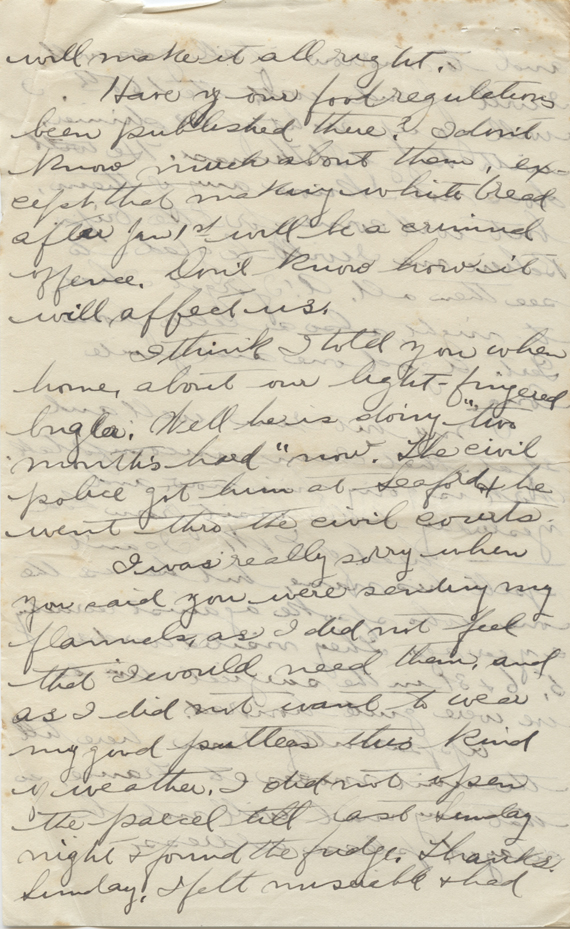 will make it all right.
Have y our food regulations
been published there? I don't
know much about them, ex-
cept that making white bread
after Jan 1st will be a criminal
offence. Don't know how it
will affect us.
I think I told you when
home, about our light-fingered
bugler. Well he is doing "two
months hard" now. The civil
police got him at Seaford & he
went thro. the civil courts.
I was really sorry when
you said you were sending my
flannels, as I did not feel
that I would need them, and
as I did not want to wear
my good puttees this kind
of weather, I did not open
the parcel till last Sunday
night & found the fudge. Thanks.
Sunday, I felt miserable & had